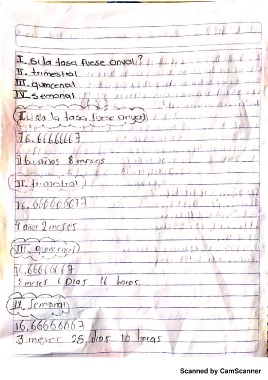 I. Si la tasa fuese anual?
II. trimestral
III. quincenal
IV. semanal
I. si la tasa fuese anual
16.66666667
16 años 8 meses
II. trimestral
16.66666667
4 años 2 meses
III. quincenal
16.66666667
8 meses 6 Dias 16 horas
IV. semanal
16.66666667
3 meses 25 dias horas
Scanned by CamScanner